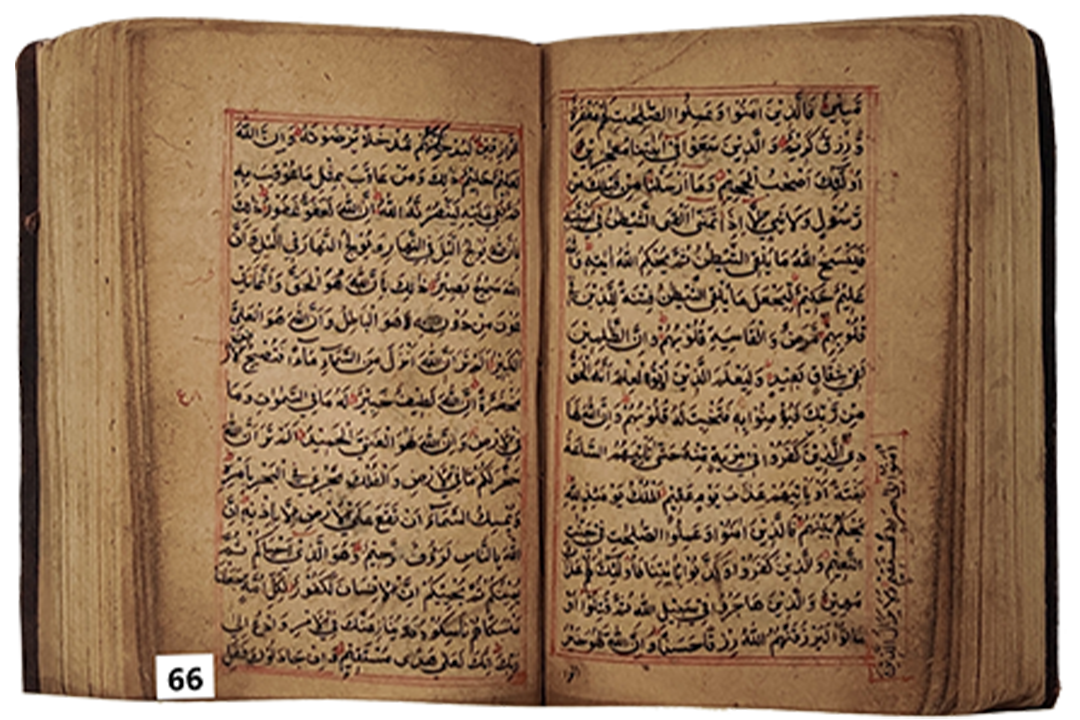 مُّبِيْنٌ فَالَّذِيْنَ اٰمَنُوْا وَعَمِلُوا الصّٰلِحٰتِ لَهُمْ مَّغْفِرَةٌ
وَّرِزْقٌ كَرِيْمٌ وَالَّذِيْنَ سَعَوْا فِيْ اٰيٰتِنَا مُعٰجِزِيْنَ
اُولٰٓئِكَ اَصْحٰبُ الْجَحِيْمِ وَمَا اَرْسَلْنَا مِنْ قَبْلِكَ مِنْ
رَّسُوْلٍ وَلَا نَبِيٍّ اِلَّا اِذَا تَمَنّٰى اَلْقَى الشَّيْطٰنُ فِيْ اُمْنِيَّتِهٖ
فَيَنْسَخُ اللّٰهُ مَا يُلْقِى الشَّيْطٰنُ ثُمَّ يُحْكِمُ اللّٰهُ اٰيٰتِهٖ وَاللّٰهُ
عَلِيْمٌ حَكِيْمٌ لِيَجْعَلَ مَا يُلْقِى الشَّيْطٰنُ فِتْنَةً لِّلَّذِيْنَ فِيْ
قُلُوْبِهِمْ مَّرَضٌ وَالْقَاسِيَةِ قُلُوْبُهُمْ وَاِنَّ الظّٰلِمِيْنَ
لَفِيْ شِقَاقٍ بَعِيْدٍ وَلِيَعْلَمَ الَّذِيْنَ اُوْتُوا الْعِلْمَ اَنَّهُ الْحَقُّ
مِنْ رَّبِّكَ فَيُؤْمِنُوْا بِهٖ فَتُخْبِتَ لَهٗ قُلُوْبُهُمْ وَاِنَّ اللّٰهَ لَهَا
دِ الَّذِيْنَ كَفَرُوْا فِيْ مِرْيَةٍ مِّنْهُ حَتّٰى تَاْتِيَهُمُ السَّاعَةُ
بَغْتَةً اَوْ يَاْتِيَهُمْ عَذَابُ يَوْمٍ عَقِيْمٍ اَلْمُلْكُ يَوْمَئِذٍ لِّلّٰهِ
يَحْكُمُ بَيْنَهُمْ فَالَّذِيْنَ اٰمَنُوْا وَعَمِلُوا الصّٰلِحٰتِ فِيْ جَنّٰتِ
النَّعِيْمِ وَالَّذِيْنَ كَفَرُوْا وَكَذَّبُوْا بِاٰيٰتِنَا فَاُولٰٓئِكَ لَهُمْ عَذَابٌ
مُّهِيْنٌ وَالَّذِيْنَ هَاجَرُوْا فِيْ سَبِيْلِ اللّٰهِ ثُمَّ قُتِلُوْا اَوْ
مَاتُوْا لَيَرْزُقَنَّهُمُ اللّٰهُ رِزْقًا حَسَنًا وَاِنَّ اللّٰهَ لَهُوَ خَيْرُ
اٰمَنُوْا اِلٰى صِرَاطٍ مُّسْتَقِيْمٍ وَلَا يَزَالُ الَّذِيْنَ
الرّٰزِقِيْنَ لَيُدْخِلَنَّهُمْ مُّدْخَلًا يَّرْضَوْنَهٗ وَاِنَّ اللّٰهَ
لَعَلِيْمٌ حَلِيْمٌ ذٰلِكَ وَمَنْ عَاقَبَ بِمِثْلِ مَا عُوْقِبَ بِهٖ
ثُمَّ بُغِيَ عَلَيْهِ لَيَنْصُرَنَّهُ اللّٰهُ اِنَّ اللّٰهَ لَعَفُوٌّ غَفُوْرٌ ذٰلِكَ
بِاَنَّ اللّٰهَ يُوْلِجُ الَّيْلَ فِى النَّهَارِ وَيُوْلِجُ النَّهَارَ فِى الَّيْلِ وَاَنَّ
اللّٰهَ سَمِيْعٌ بَصِيْرٌ ذٰلِكَ بِاَنَّ اللّٰهَ هُوَ الْحَقُّ وَاَنَّ مَا يَدْ
عُوْنَ مِنْ دُوْنِهٖ هُوَ الْبَاطِلُ وَاَنَّ اللّٰهَ هُوَ الْعَلِيُّ
الْكَبِيْرُ اَلَمْ تَرَ اَنَّ اللّٰهَ اَنْزَلَ مِنَ السَّمَآءِ مَآءً فَتُصْبِحُ الْاَرْضُ
مُخْضَرَّةً اِنَّ اللّٰهَ لَطِيْفٌ خَبِيْرٌ لَهٗ مَا فِى السَّمٰوٰتِ وَمَا
فِى الْاَرْضِ وَاِنَّ اللّٰهَ لَهُوَ الْغَنِيُّ الْحَمِيْدُ اَلَمْ تَرَ اَنَّ اللّٰهَ
سَخَّرَ لَكُمْ مَّا فِى الْاَرْضِ وَالْفُلْكَ تَجْرِيْ فِى الْبَحْرِ بِاَمْرِهٖ
وَيُمْسِكُ السَّمَآءَ اَنْ تَقَعَ عَلَى الْاَرْضِ اِلَّا بِاِذْنِهٖ اِنَّ
اللّٰهَ بِالنَّاسِ لَرَءُوْفٌ رَّحِيْمٌ وَهُوَ الَّذِيْ اَحْيَاكُمْ ثُمَّ
يُمِيْتُكُمْ ثُمَّ يُحْيِيْكُمْ اِنَّ الْاِنْسَانَ لَكَفُوْرٌ لِكُلِّ اُمَّةٍ جَعَلْنَا
مَنْسَكًا هُمْ نَاسِكُوْهُ فَلَا يُنَازِعُنَّكَ فِى الْاَمْرِ وَادْعُ اِلٰى
رَبِّكَ اِنَّكَ لَعَلٰى هُدًى مُّسْتَقِيْمٍ وَاِنْ جَادَلُوْكَ فَقُلِ
66